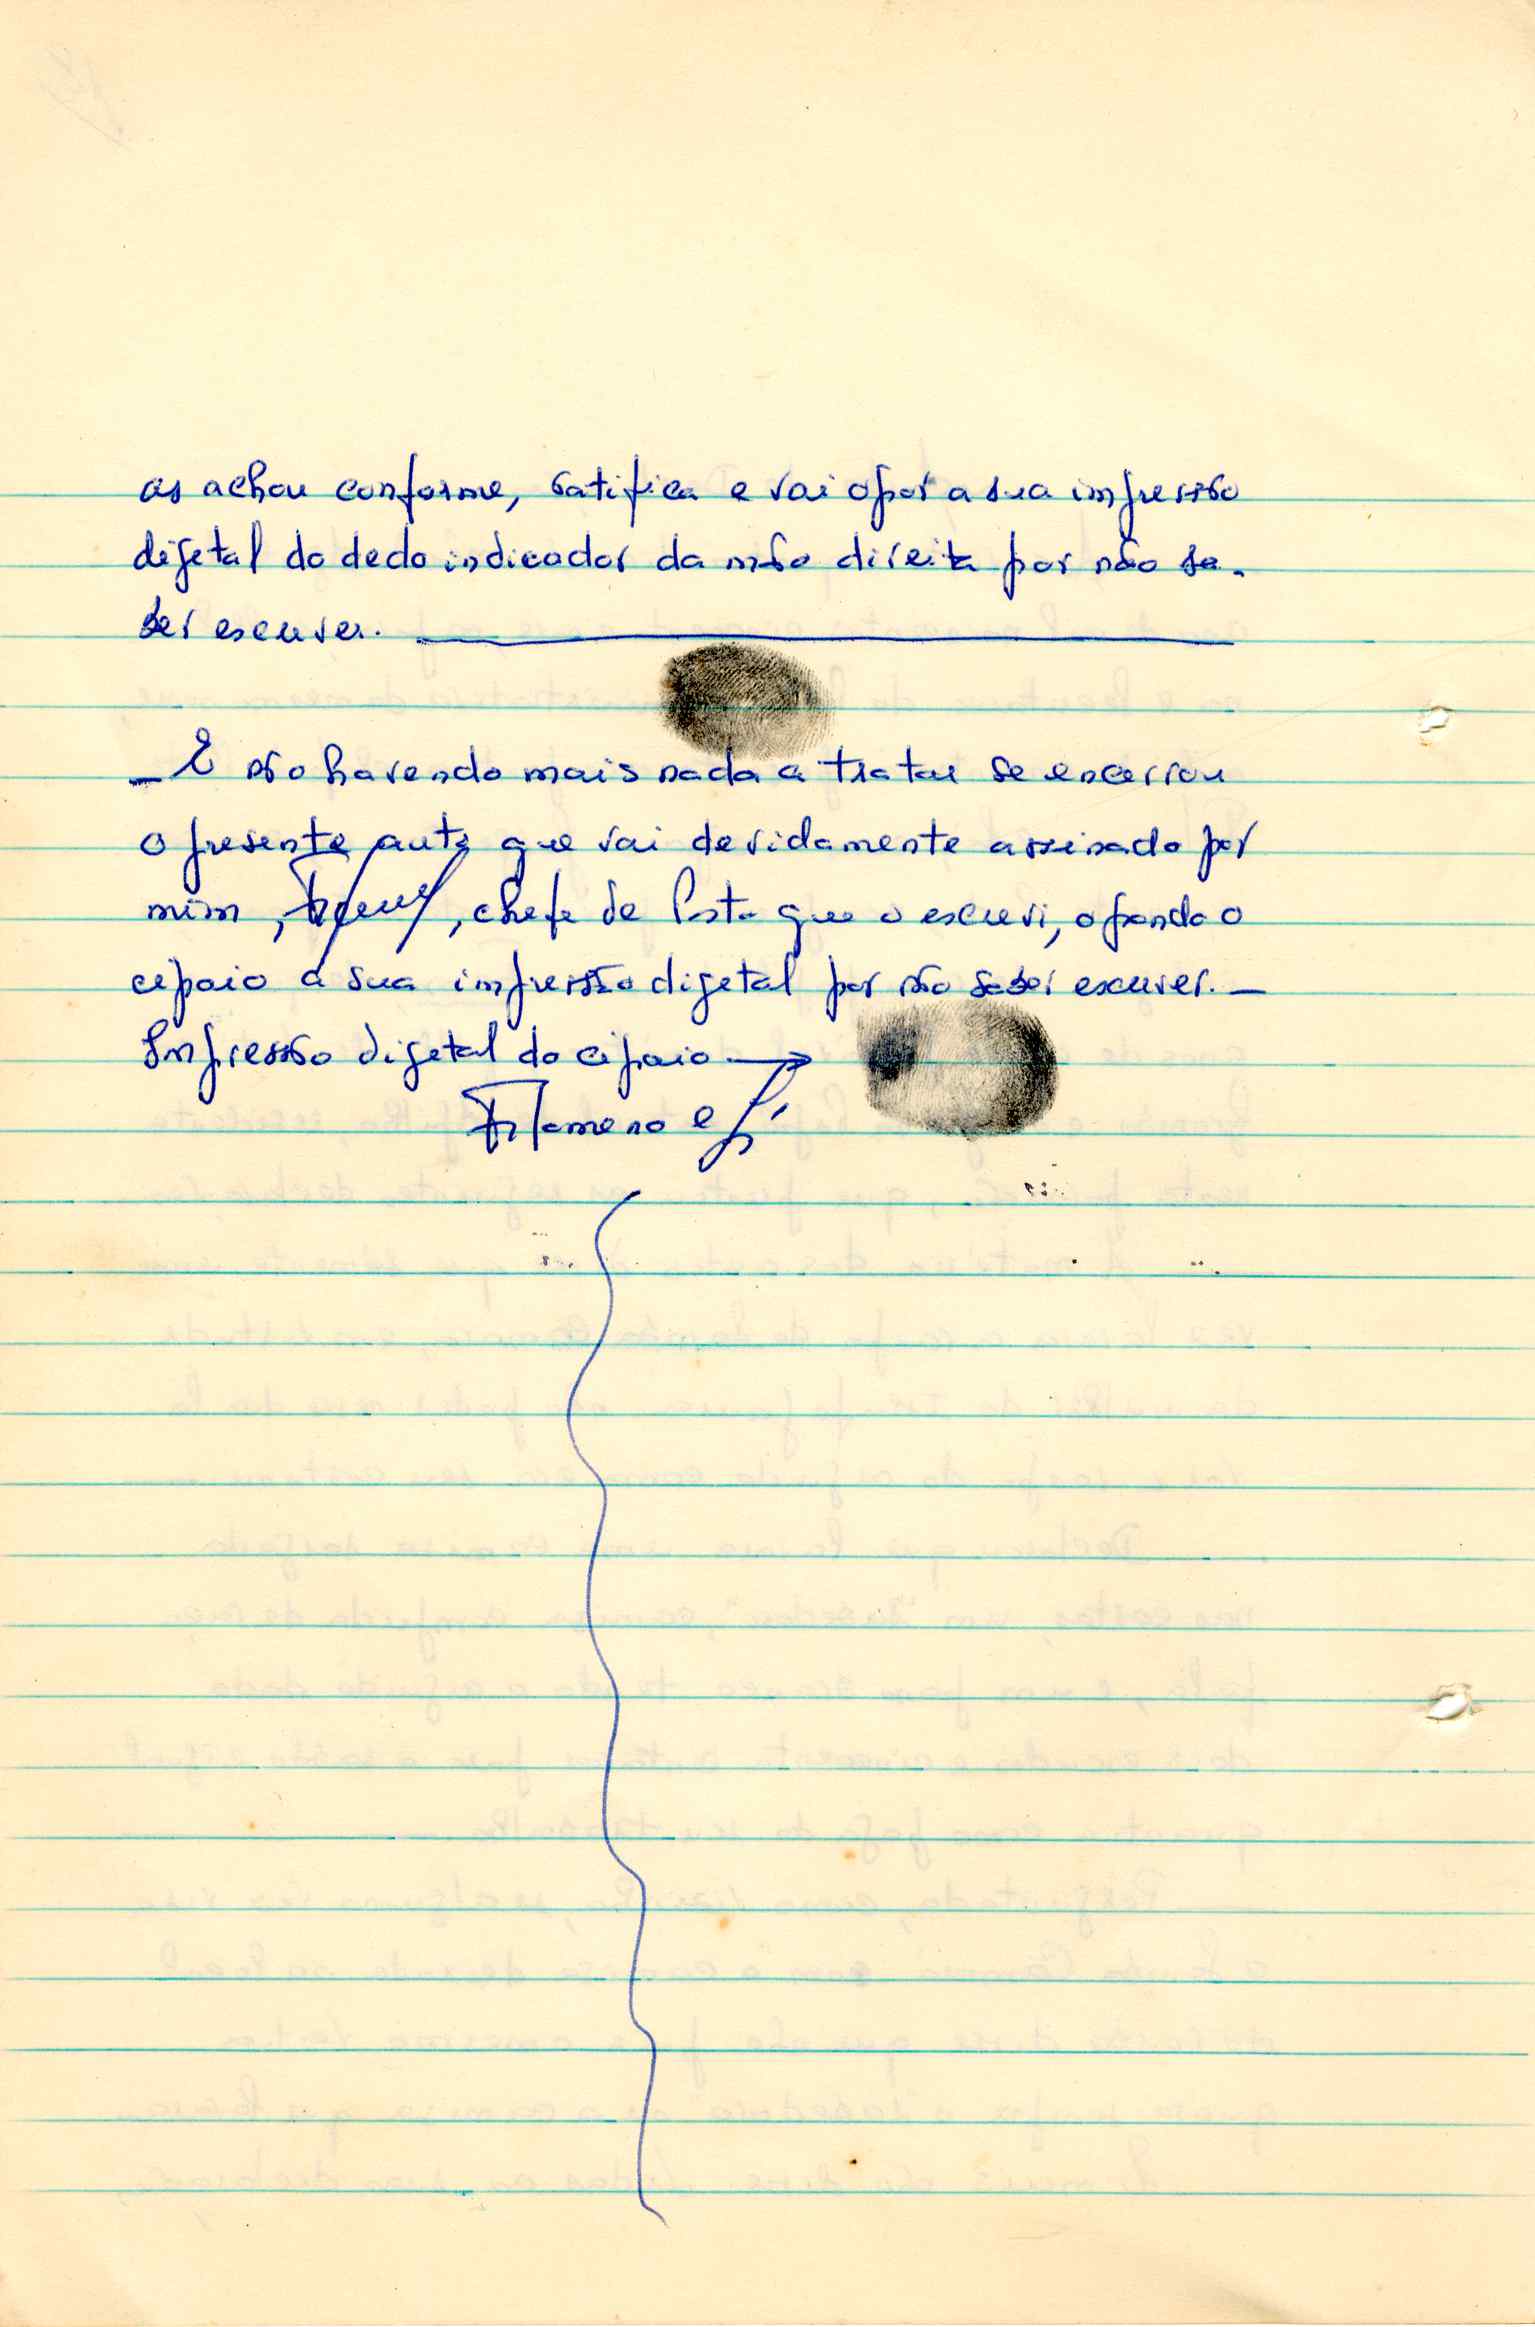 as achou conforme, ratifica e vai opôr a sua impressão
digetal do dedo indicador da mão direita por não sa-
ber escrever.
_ E não havendo mais nada a tratar se encerrou
o presente auto que vai devidamente assinado por
mim, , chefe de Posto que o escrevi, opondo o
cipaio a sua impressão digetal por não saber escrever. _
Impressão digetal do cipaio →
Filomeno e Sá